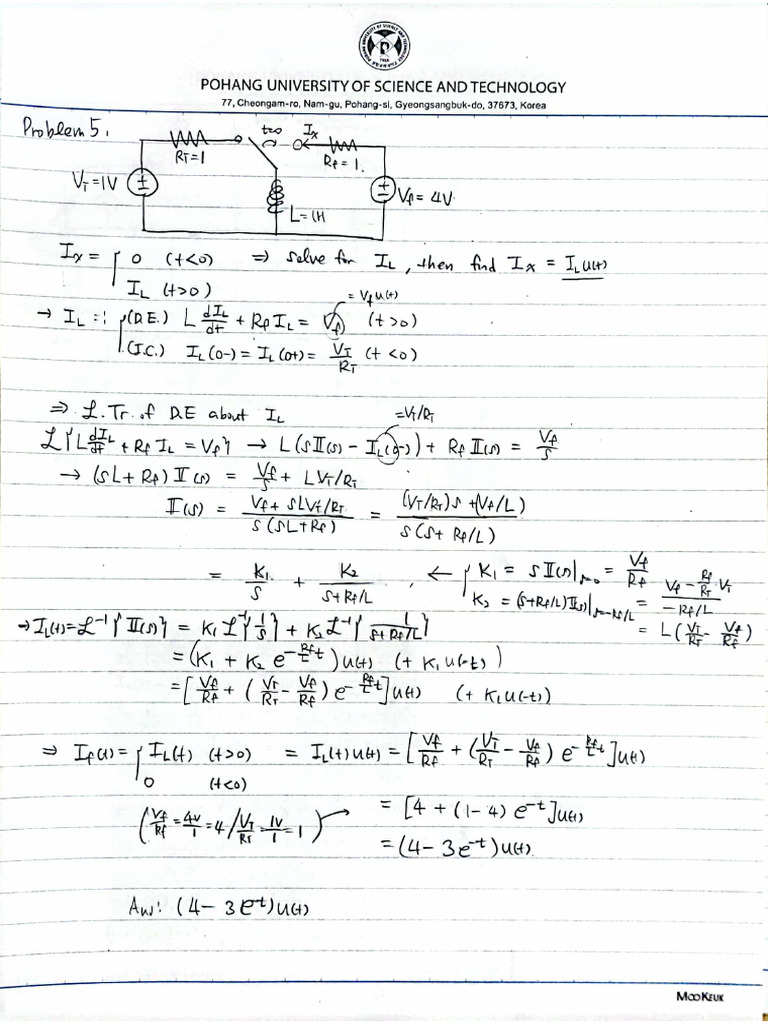 POHANG UNIVERSITY OF SCIENCE AND TECHNOLOGY
77, Cheongam-ro, Nam-gu, Pohang-si, Gyeongsangbuk-do, 37673, Korea
Problem 5.
t=0 I_x
R_T=1 R_f=1.
V_T=1V V_f=4V
L=1H
I_x = { 0 (t<0) ⇒ solve for I_L, then find I_x = I_L u(t)
I_L (t>0)
= V_f u(t)
→ I_L =: { (D.E.) L dI_L/dt + R_f I_L = V_f (t>0)
(I.C.) I_L(0-) = I_L(0+) = V_T/R_T (t<0)
⇒ L.Tr. of D.E about I_L
=V_T/R_T
L{L dI_L/dt + R_f I_L = V_f} → L(sII(s) - I_L(0-)) + R_f II(s) = V_f/s
→ (sL+R_f) II(s) = V_f/s + LV_T/R_T
II(s) = (V_f + sLV_T/R_T)/(s(sL+R_f)) = ((V_T/R_T)s + (V_f/L))/(s(s+R_f/L))
= K_1/s + K_2/(s+R_f/L) , ← { K_1 = sII(s)|_{s=0} = V_f/R_f
K_2 = (s+R_f/L)II(s)|_{s=-R_f/L} = (V_f - (R_f/R_T)V_T)/(-R_f/L)
= L(V_T/R_T - V_f/R_f)
→ I_L(t) = L^-1{II(s)} = K_1 L^-1{1/s} + K_2 L^-1{1/(s+R_f/L)}
= (K_1 + K_2 e^{-(R_f/L)t})u(t) (+ K_1 u(-t))
= [V_f/R_f + (V_T/R_T - V_f/R_f) e^{-(R_f/L)t}]u(t) (+ K_1 u(-t))
⇒ I_f(t) = { I_L(t) (t>0) = I_L(t)u(t) = [V_f/R_f + (V_T/R_T - V_f/R_f) e^{-(R_f/L)t}]u(t)
0 (t<0)
(V_f/R_f = 4V/1 = 4 / V_T/R_T = 1V/1 = 1) → = [4 + (1-4) e^{-t}]u(t)
= (4 - 3e^{-t})u(t).
Ans: (4 - 3e^{-t})u(t)
MOOKEUK